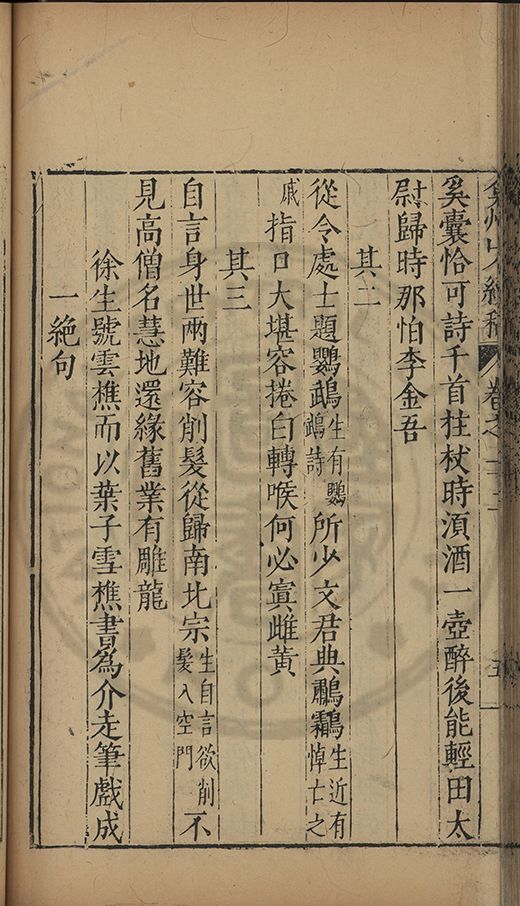 奚囊恰可詩千首拄杖時湏酒一壺醉後能輕田太
尉歸時那怕李金吾
其二
從令處士題鸚鵡生有鸚鵡詩所少文君典鷫鸘生近有悼亡之
戚指口大堪容捲白轉喉何必寘雌黃
其三
自言身世兩難容削髮從歸南北宗生自言欲削髮入空門不
見高僧名慧地還緣舊業有雕龍
徐生號雲樵而以葉子雪樵書為介走筆戲成
一絶句